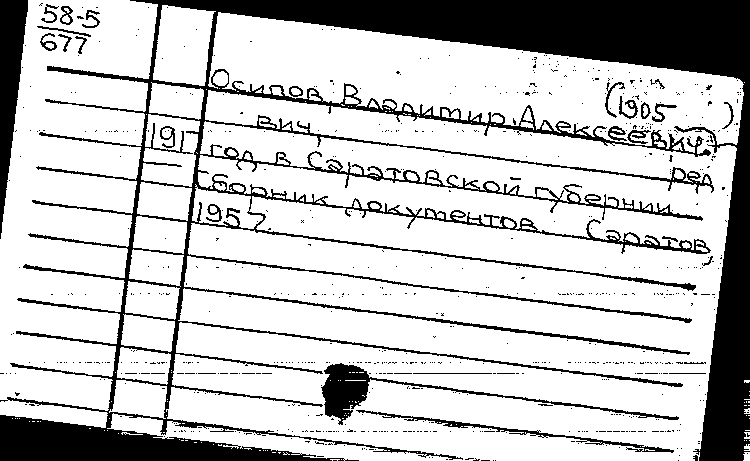 58-5
677
Осипов, Владимир Алексеевич.
(1905 )
вич,
ред.
1917 год в Саратовской губернии.
Сборник документов. Саратов,
1957.